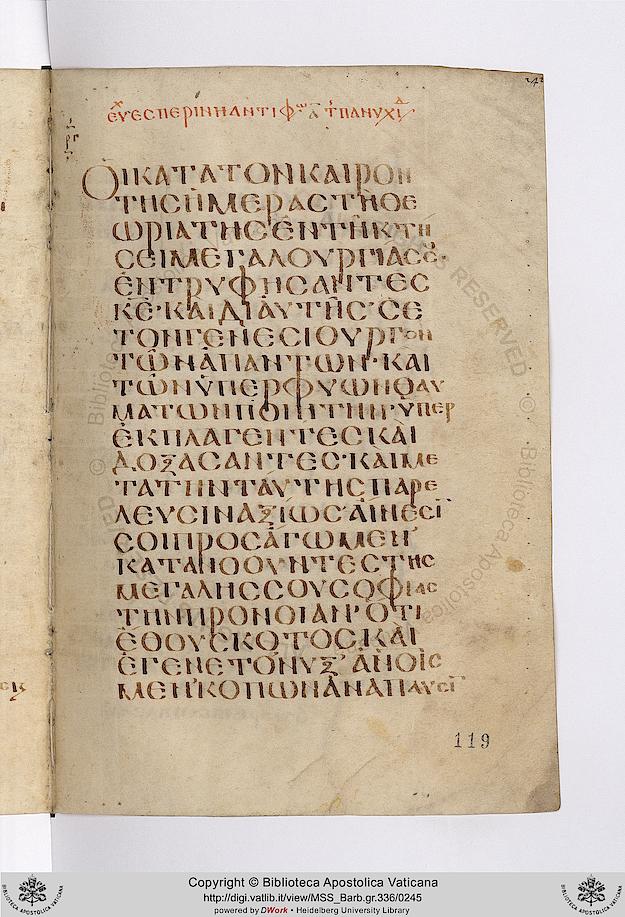 ΕΥ ΕΣΠΕΡΙΝΗ ΑΝΤΙΦω Α Τ ΠΑΝΥΧΙΔ
ΟΙ ΚΑΤΑ ΤΟΝ ΚΑΙΡΟΝ
ΤΗΣ ΗΜΕΡΑΣ ΤΗ ΘΕ
ΩΡΙΑ ΤΗΣ ΕΝ ΤΗ ΚΤΗ
ΣΕΙ ΜΕΓΑΛΟΥΡΓΙΑΣ ΣΟΥ
ΕΝΤΡΥΦΗΣΑΝΤΕΣ
ΚΕ· ΚΑΙ ΔΙ ΑΥΤΗΣ· ΣΕ
ΤΟΝ ΓΕΝΕΣΙΟΥΡΓΟΝ
ΤΩΝ ΑΠΑΝΤΩΝ· ΚΑΙ
ΤΩΝ ΥΠΕΡΦΥΩΝ ΘΑΥ
ΜΑΤΩΝ ΠΟΙΗΤΗΝ· ΥΠΕΡ
ΕΚΠΛΑΓΕΝΤΕΣ ΚΑΙ
ΔΟΞΑΣΑΝΤΕΣ· ΚΑΙ ΜΕ
ΤΑ ΤΗΝ ΤΑΥΤΗΣ ΠΑΡΕ
ΛΕΥΣΙΝ ΑΞΙΩΣ ΑΙΝΕΣΙ
ΣΟΙ ΠΡΟΣΑΓΩΜΕΝ
ΚΑΤΑΝΟΟΥΝΤΕΣ ΤΗΣ
ΜΕΓΑΛΗΣ ΣΟΥ ΣΟΦΙΑΣ
ΤΗΝ ΠΡΟΝΟΙΑΝ· ΟΤΙ
ΕΘΟΥ ΣΚΟΤΟΣ ΚΑΙ
ΕΓΕΝΕΤΟ ΝΥΞ· ΑΝΘΙΣ
ΜΕΝ ΚΟΠΩΝ ΑΝΑΠΑΥΣΙ
119
Copyright © Biblioteca Apostolica Vaticana
http://digi.vatlib.it/view/MSS_Barb.gr.336/0245
powered by DWork • Heidelberg University Library